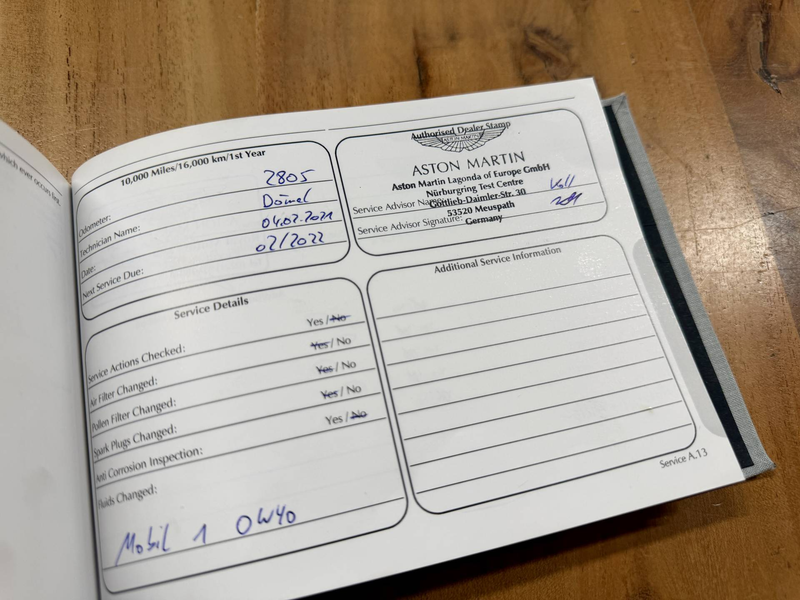 which ever occurs first.
10,000 Miles/16,000 km/1st Year
Odometer: 2805
Technician Name: Dömel
Date: 04.02.2021
Next Service Due: 02/2022
Authorised Dealer Stamp
ASTON MARTIN
ASTON MARTIN
Aston Martin Lagonda of Europe GmbH
Nürburgring Test Centre
Service Advisor Name: Gottlieb-Daimler-Str. 30
53520 Meuspath
Service Advisor Signature: Germany
Service Details
Service Actions Checked: Yes / No
Air Filter Changed: Yes / No
Pollen Filter Changed: Yes / No
Spark Plugs Changed: Yes / No
Anti Corrosion Inspection: Yes / No
Fluids Changed:
Mobil 1 0W40
Additional Service Information
Service A.13